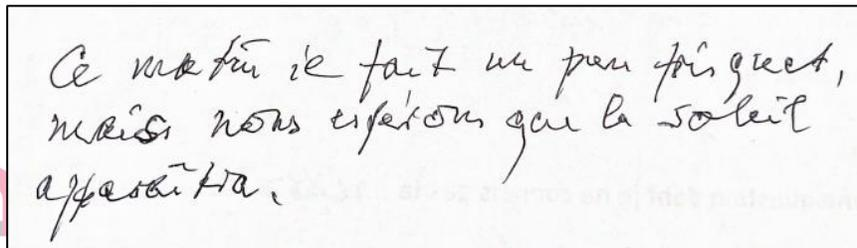 Ce matin il fait un peu frisquet,
mais nous espérons que le soleil
apparaîtra.